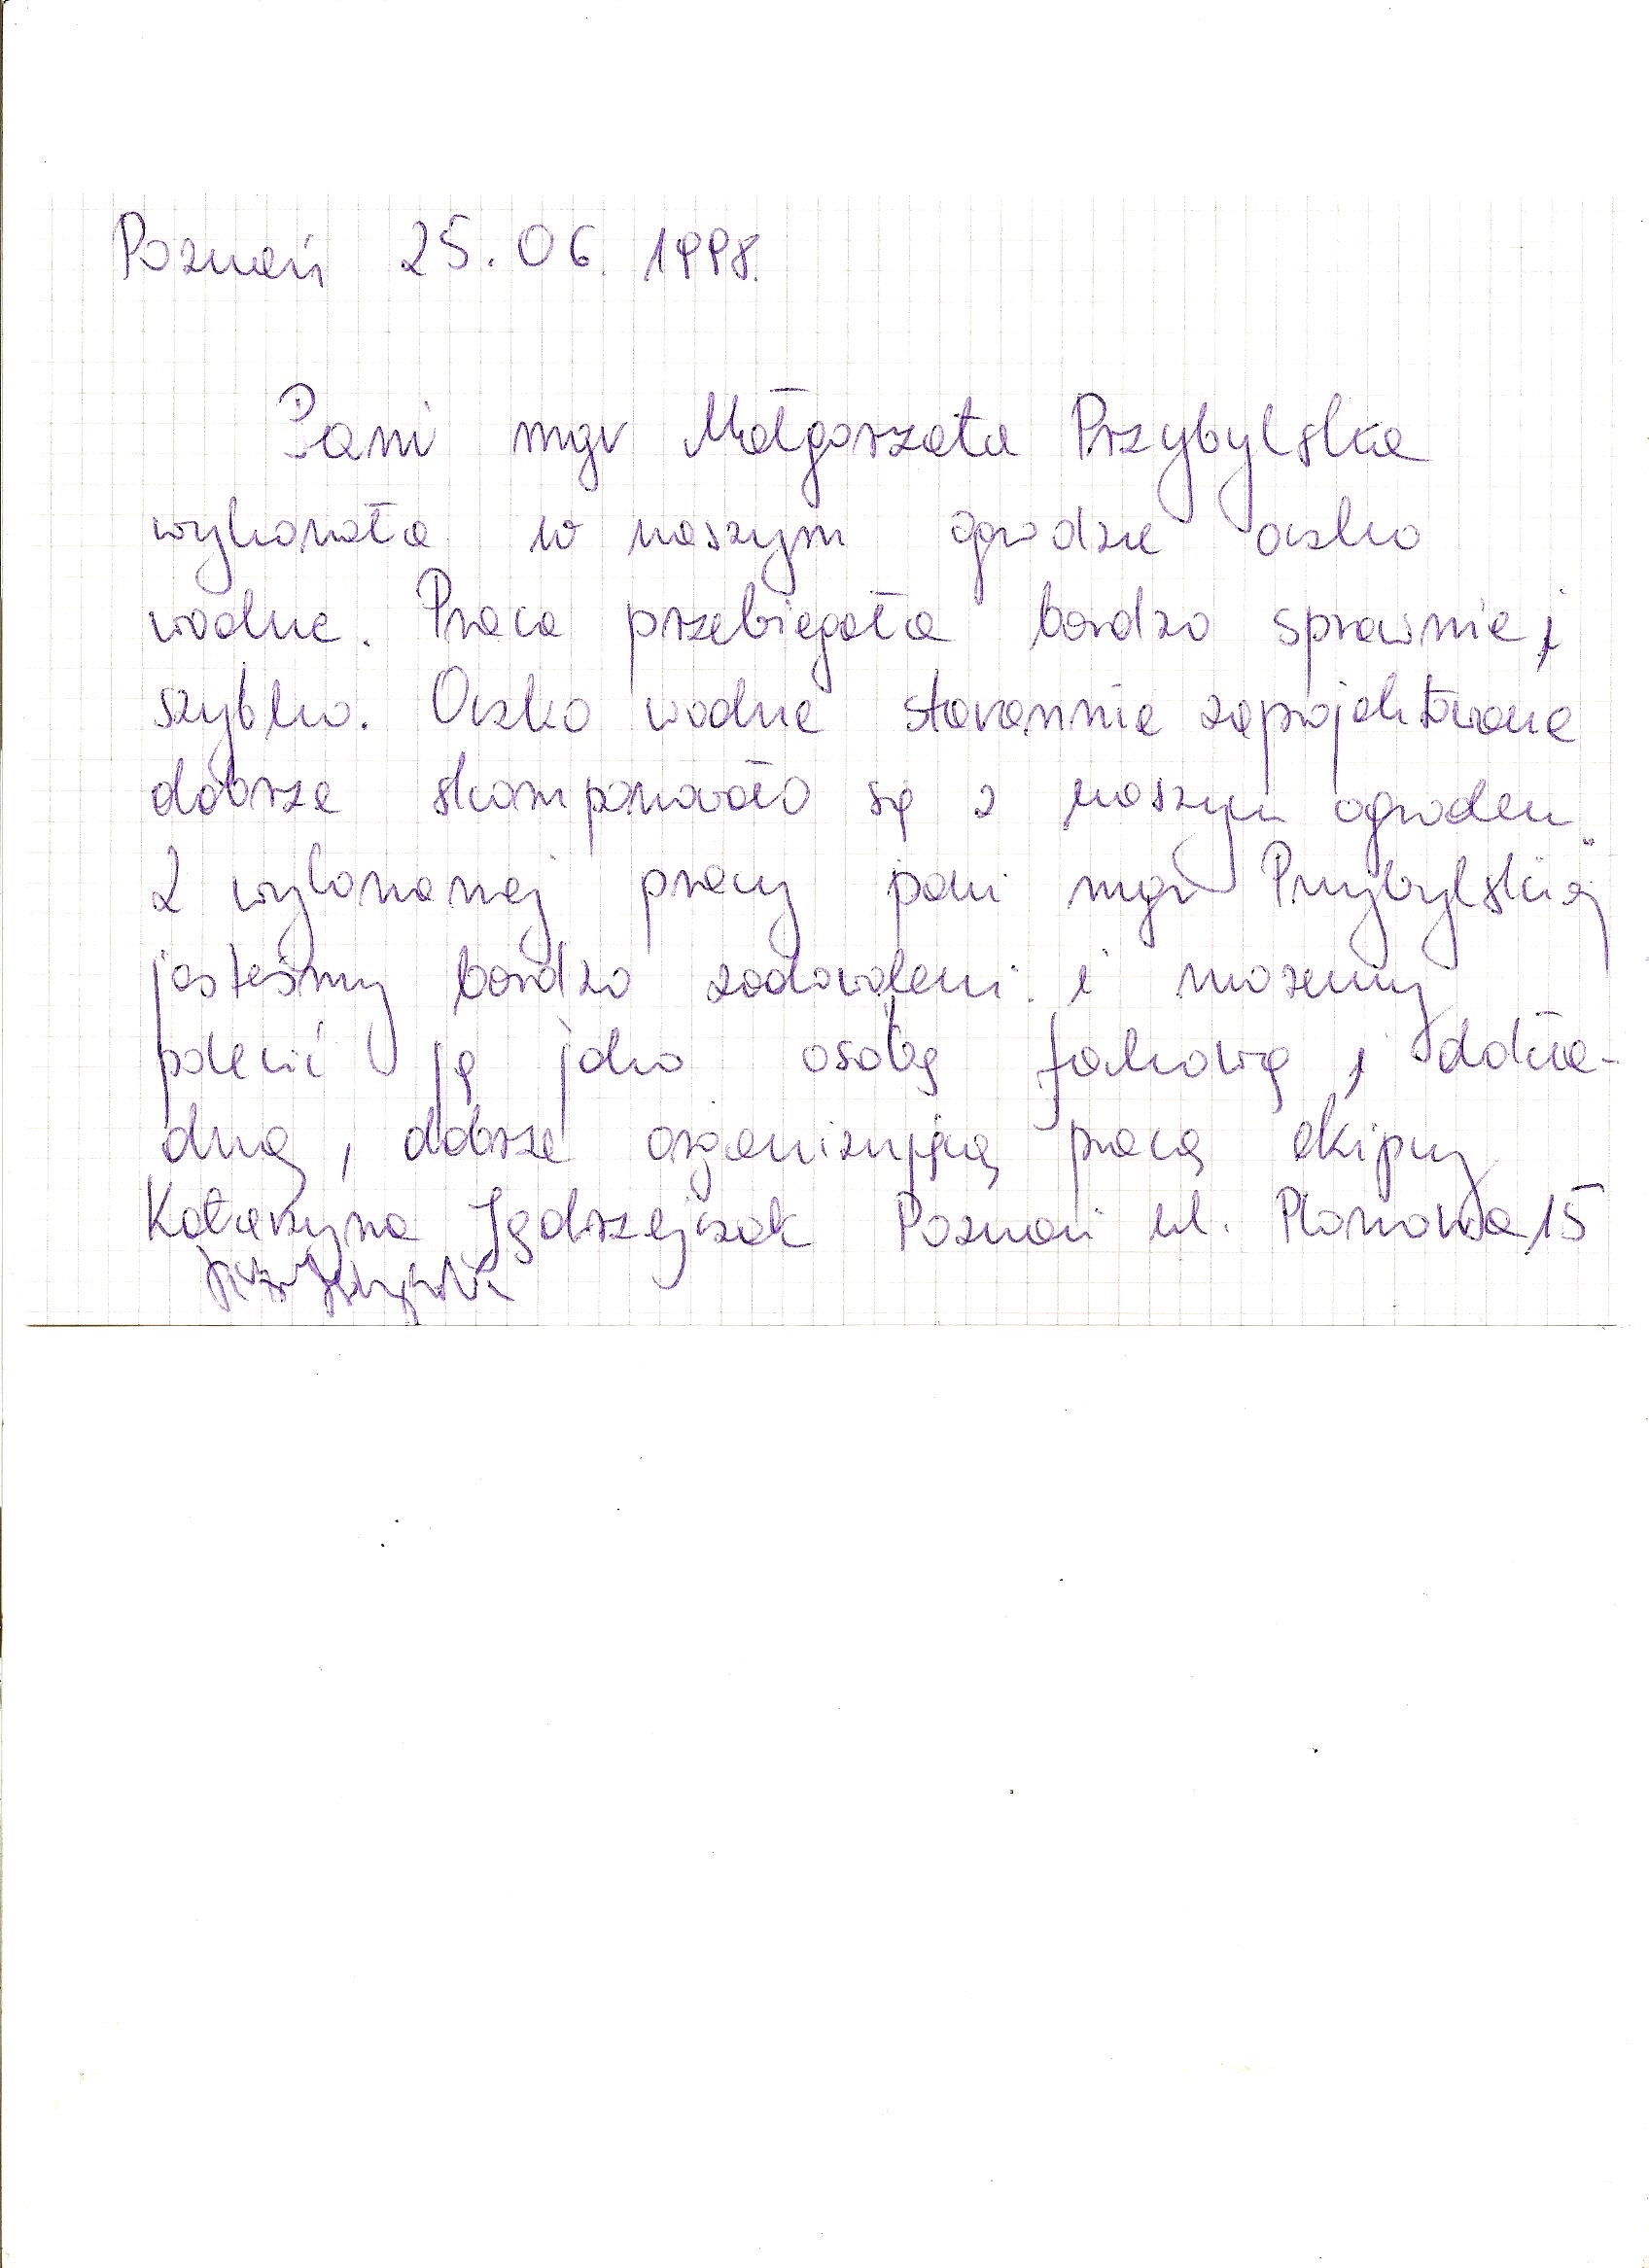 Poznań 25.06.1998.
Pani mgr Małgorzata Przybylska
wykonała w naszym ogrodzie oczko
wodne. Praca przebiegała bardzo sprawnie i
szybko. Oczko wodne starannie zaprojektowane
dobrze skomponowało się z naszym ogrodem.
Z wykonanej pracy pani mgr Przybylskiej
jesteśmy bardzo zadowoleni i możemy
polecić ją jako osobę fachową, dokła-
dną, dobrze organizującą pracę ekipy
Katarzyna Jędrzejczak Poznań ul. Plonowa 15